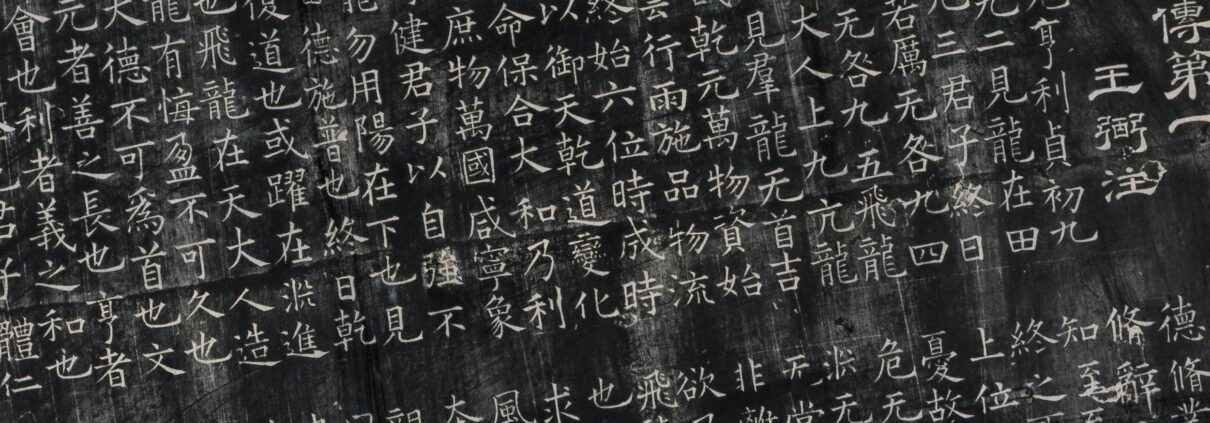 傳第一
王弼注
亨利貞初九
九二見龍在田
九三君子終日
若厲无咎九四
无咎九五飛龍
大人上九亢龍
見羣龍无首吉
乾元萬物資始
雲行雨施品物流
終始六位時成時
以御天乾道變化
命保合大和乃利
庶物萬國咸寧象
健君子以自強不
龍勿用陽在下也見
德施普也終日乾
復道也或躍在淵進
也飛龍在天大人造
龍有悔盈不可久也
大德不可爲首也文
元者善之長也亨者
會也利者義之和也
君子體仁
德脩
脩辭
知至
終之
上位
憂故
危无
淵无
无常
非離
欲
飛
也
求
風